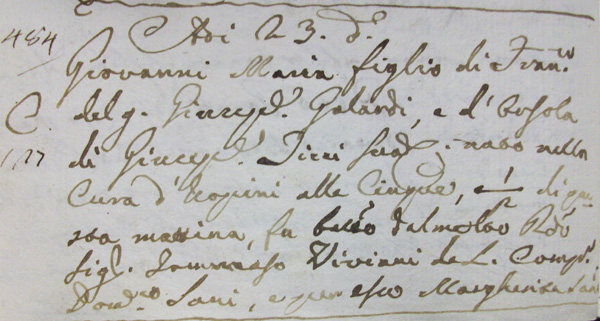 484 Adi 23. d.o
Giovanni Maria figlio di Fran.co
del q. Giusep.e Galardi, e d' Orsola
di Giusep.e Ticci sua ; nato nella
C.
Cura d' Ropini alle Cinque, e ½ di que
sta mattina, fu batt.o dal molto Rdo
Sig.r Tommaso Viviani de L. Comp.e
Dom.co Sani, e per esso Margherita Sani